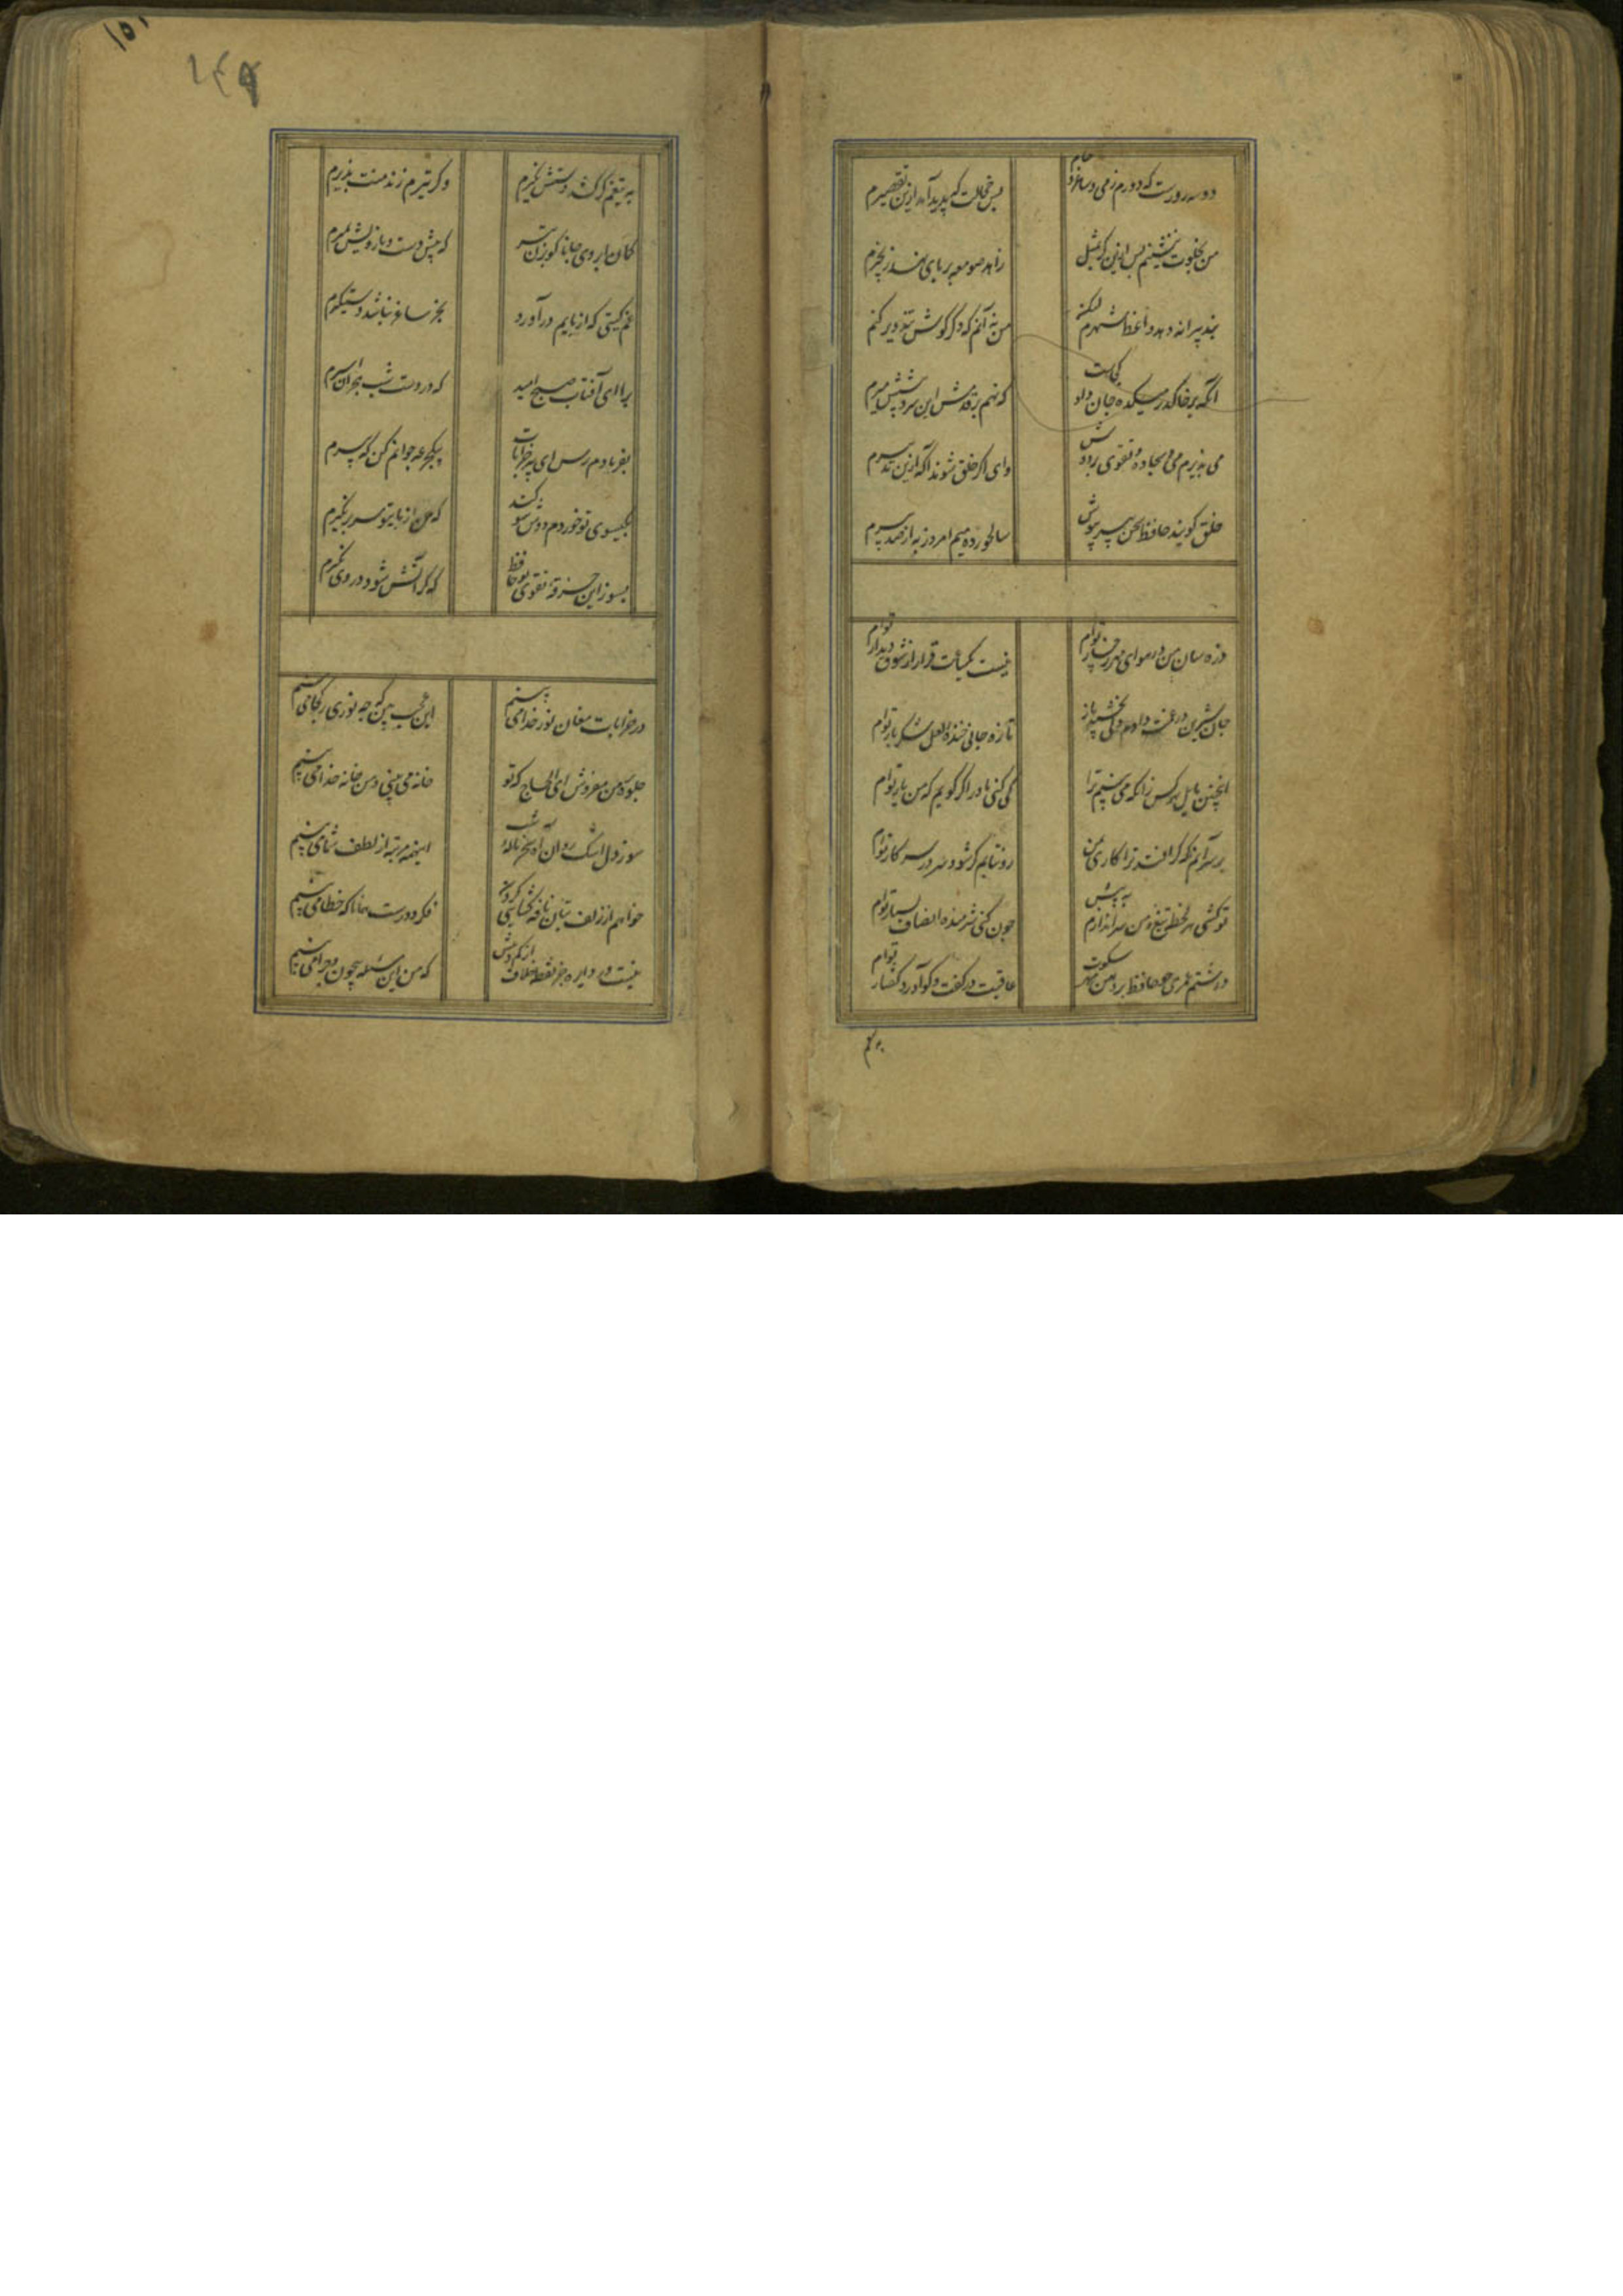 ۱۵۱
۱۴۹
دو سه روزست که دورم ز می و ساغر و جام
بس خجالت که پدید آمد ازین تقصیرم
من بخلوت ننشینم پس ازین گر بمثل
زاهد صومعه بر پای نهد زنجیرم
پند پیرانه دهد واعظ شهرم لیکن
من نه آنم که دگر گوش بتزویر کنم
آنکه بر خاک در میکده جان داد کجاست
که نهم بر قدمش این سر و پیشش میرم
می بزیرم می و سجاده تقوی بر دوش
وای اگر خلق شوند آگه ازین تدبیرم
خلق گویند حافظ سخن پیر نیوش
سالخورده میم امروز به از صد پیرم
ذره سان من در هوای مهر رخسار توام
نیست یکساعت قرار از شوق دیدار توام
جان شیرین در غمت دادم ولی بخشید باز
تازه جانی خنده لعل شکر بار توام
اینچنین مایل بهر کس زانکه می بینم ترا
کی کنی باور اگر گویم که من یار توام
بر سر آنم که گر افتد ترا کاری بمن
رو نتابم گر شود سر در سر کار توام
تو کشی هر لحظه تیغ و من سر اندازم به پیش
چون کنی شرمنده انصاف بسیار توام
داشتم عمری چو حافظ بر دهن مهر سکوت
عاقبت در گفت و گو آورد گفتار توام
به تیغم
به تیغم گر کشد دستش نگیرم
وگر تیرم زند منت پذیرم
کمان ابروی جانانا گو بزن تیر
که پیش دست و بازویش بمیرم
غم گیتی که از پایم درآورد
بجز ساغر نباشد دستگیرم
برآ ای آفتاب صبح امید
که در دست شب هجران اسیرم
بفریادم رس ای پیر خرابات
بیکجرعه جوانم کن که پیرم
بگیسوی تو خوردم دوش سوگند
که من از پای تو سر بر نگیرم
بسوز این خرقه تقوی تو حافظ
که گر آتش شود در وی نگیرم
در خرابات مغان نور خدا می بینم
این عجب بین که چه نوری ز کجا می بینم
جلوه بر من مفروش ای ملک الحاج که تو
خانه می بینی و من خانه خدا می بینم
سوز دل اشک روان آه سحر ناله شب
اینهمه مرتبه از لطف شما می بینم
خواهم از زلف بتان نافه گشایی کردن
فکر دورست همانا که خطا می بینم
نیست در دایره جز نقطه خلاف از کم و بیش
که من این مسئله بیچون و چرا می بینم